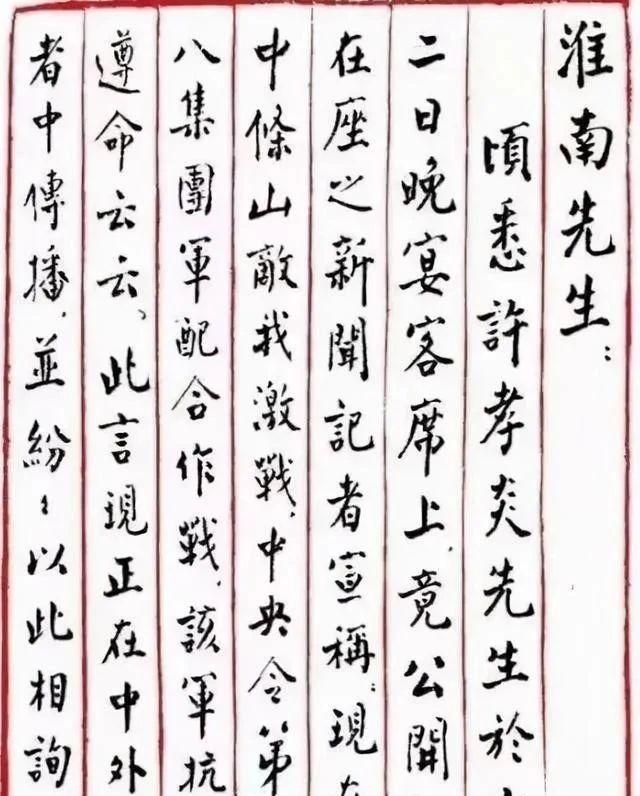 淮南先生：
頃悉許孝炎先生於
二日晚宴客席上，竟公開
在座之新聞記者宣稱：現
中條山敵我激戰，中央令第
八集團軍配合作戰，該軍抗
遵命云云、此言現正在中外
者中傳播，並紛〻以此相詢